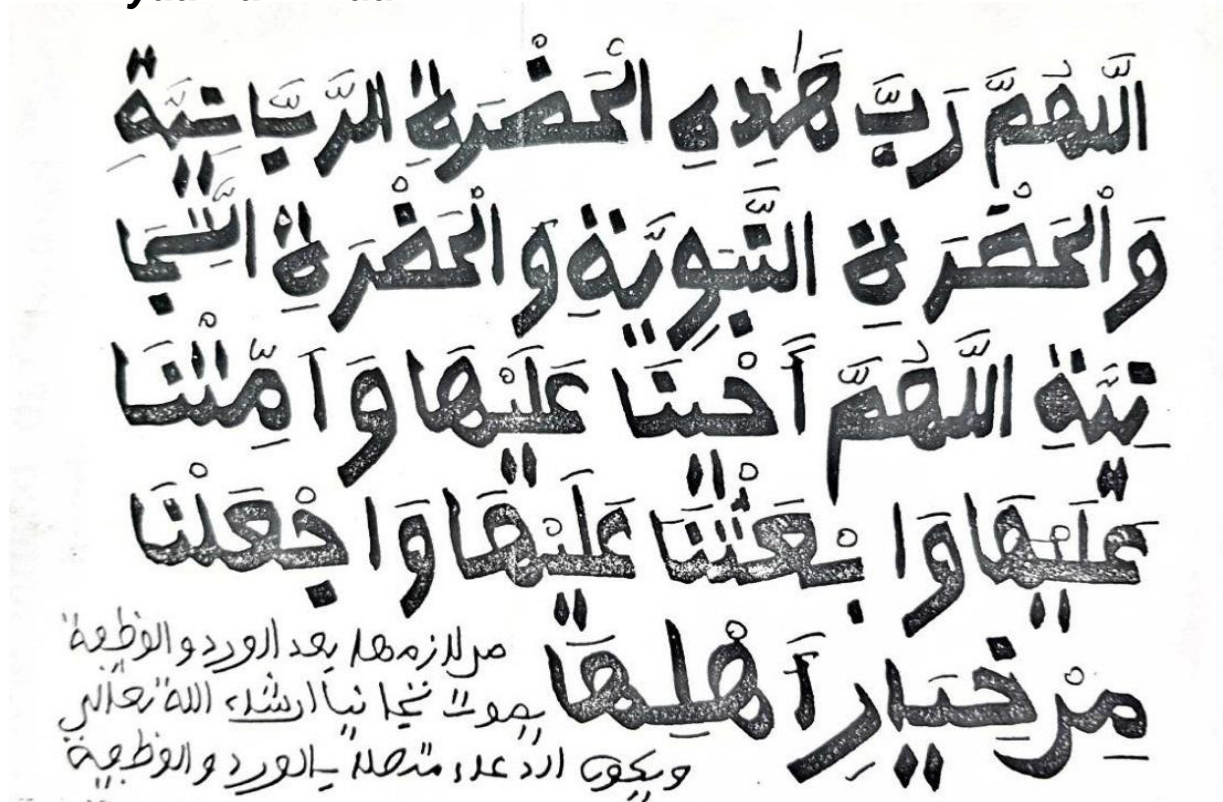 اللَّهُمَّ رَبَّ هَٰذِهِ الْحَضْرَةِ الرَّبَّانِيَّةِ
وَالْحَضْرَةِ النَّبَوِيَّةِ وَالْحَضْرَةِ التِّجَا
نِيَّةِ اللَّهُمَّ أَحْيِنَا عَلَيْهَا وَامِّتْنَا
عَلَيْهَا وَابْعَثْنَا عَلَيْهَا وَاجْعَلْنَا
مِنْ خِيَارِ أَهْلِهَا
من لازمها بعد الورد والوظيفة
يموت تجانيا ان شاء الله تعالى
ويكون الدعاء متصلا بالورد والوظيفة